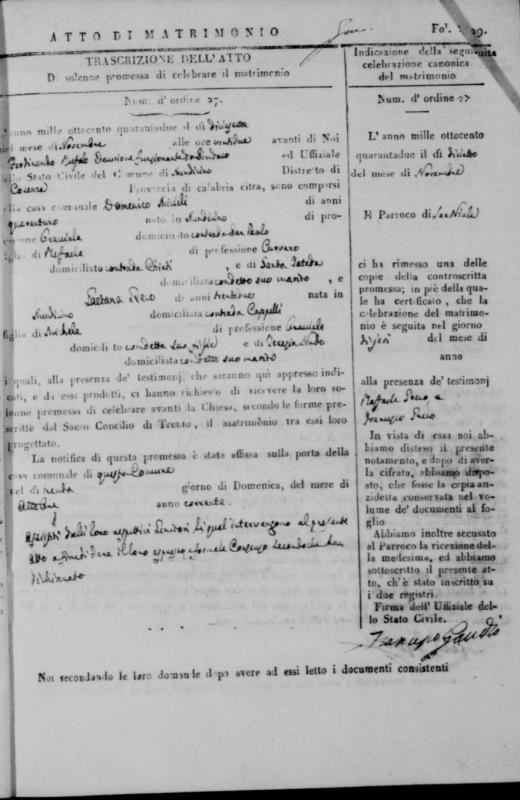 ATTO DI MATRIMONIO
Fol. 29.
TRASCRIZIONE DELL'ATTO
Di solenne promessa di celebrare il matrimonio
Num. d'ordine 27.
L'anno mille ottocento quarantadue il dì
del mese di Novembre alle ore ventidue avanti di Noi
Ferdinando Decurione funzionante da Sindaco ed Uffiziale
dello Stato Civile del Comune di Distretto di
Cosenza Provincia di calabria citra, sono comparsi
nella casa comunale Domenico di anni
quarantuno nato in di pro-
fessione domiciliato contrada San Paolo
figlio di Raffaele di professione
domiciliato contrada , e di Santa
domiciliata con detto suo marito , e
Gaetana Greco di anni trentuno nata in
domiciliata contrada Cappelli
figlia di Michele di professione
domiciliato con detta sua figlia e di Teresia
domiciliata con detto suo marito
i quali, alla presenza de' testimonj, che saranno quì appresso indi-
cati, e da essi prodotti, ci hanno richiesto di ricevere la loro so-
lenne promessa di celebrare avanti la Chiesa, secondo le forme pre-
scritte dal Sacro Concilio di Trento, il matrimònio tra essi loro
progettato.
La notifica di questa promessa è stata affissa sulla porta della
casa comunale di questo Comune
nel dì trenta giorno di Domenica, del mese di
Ottobre anno corrente.
dalli loro rispettivi Genitori li quali intervengono al presente
Atto a fine di dare il loro espresso e formale Consenso secondo che han
dichiarato
Noi secondando le loro domande dopo avere ad essi letto i documenti consistenti
Indicazione della seguita
celebrazione canonica
del matrimonio
Num. d'ordine 27
L'anno mille ottocento
quarantadue il dì
del mese di Novembre
Il Parroco di San Nicola
ci ha rimesso una delle
copie della controscritta
promessa; in piè della qua-
le ha certificato, che la
celebrazione del matrimo-
nio è seguita nel giorno
del mese di
anno
alla presenza de' testimonj
Raffaele Greco, e
Francesco Greco
In vista di essa noi ab-
biamo disteso il presente
notamento, e dopo di aver-
la cifrata, abbiamo dispo-
sto, che fosse la copia an-
zidetta conservata nel vo-
lume de' documenti al fo-
glio
Abbiamo inoltre accusato
al Parroco la ricezione del-
la medesima, ed abbiamo
sottoscritto il presente at-
to, ch'è stato inscritto su
i due registri.
Firma dell' Uffiziale del-
lo Stato Civile.
Francesco Gaudio